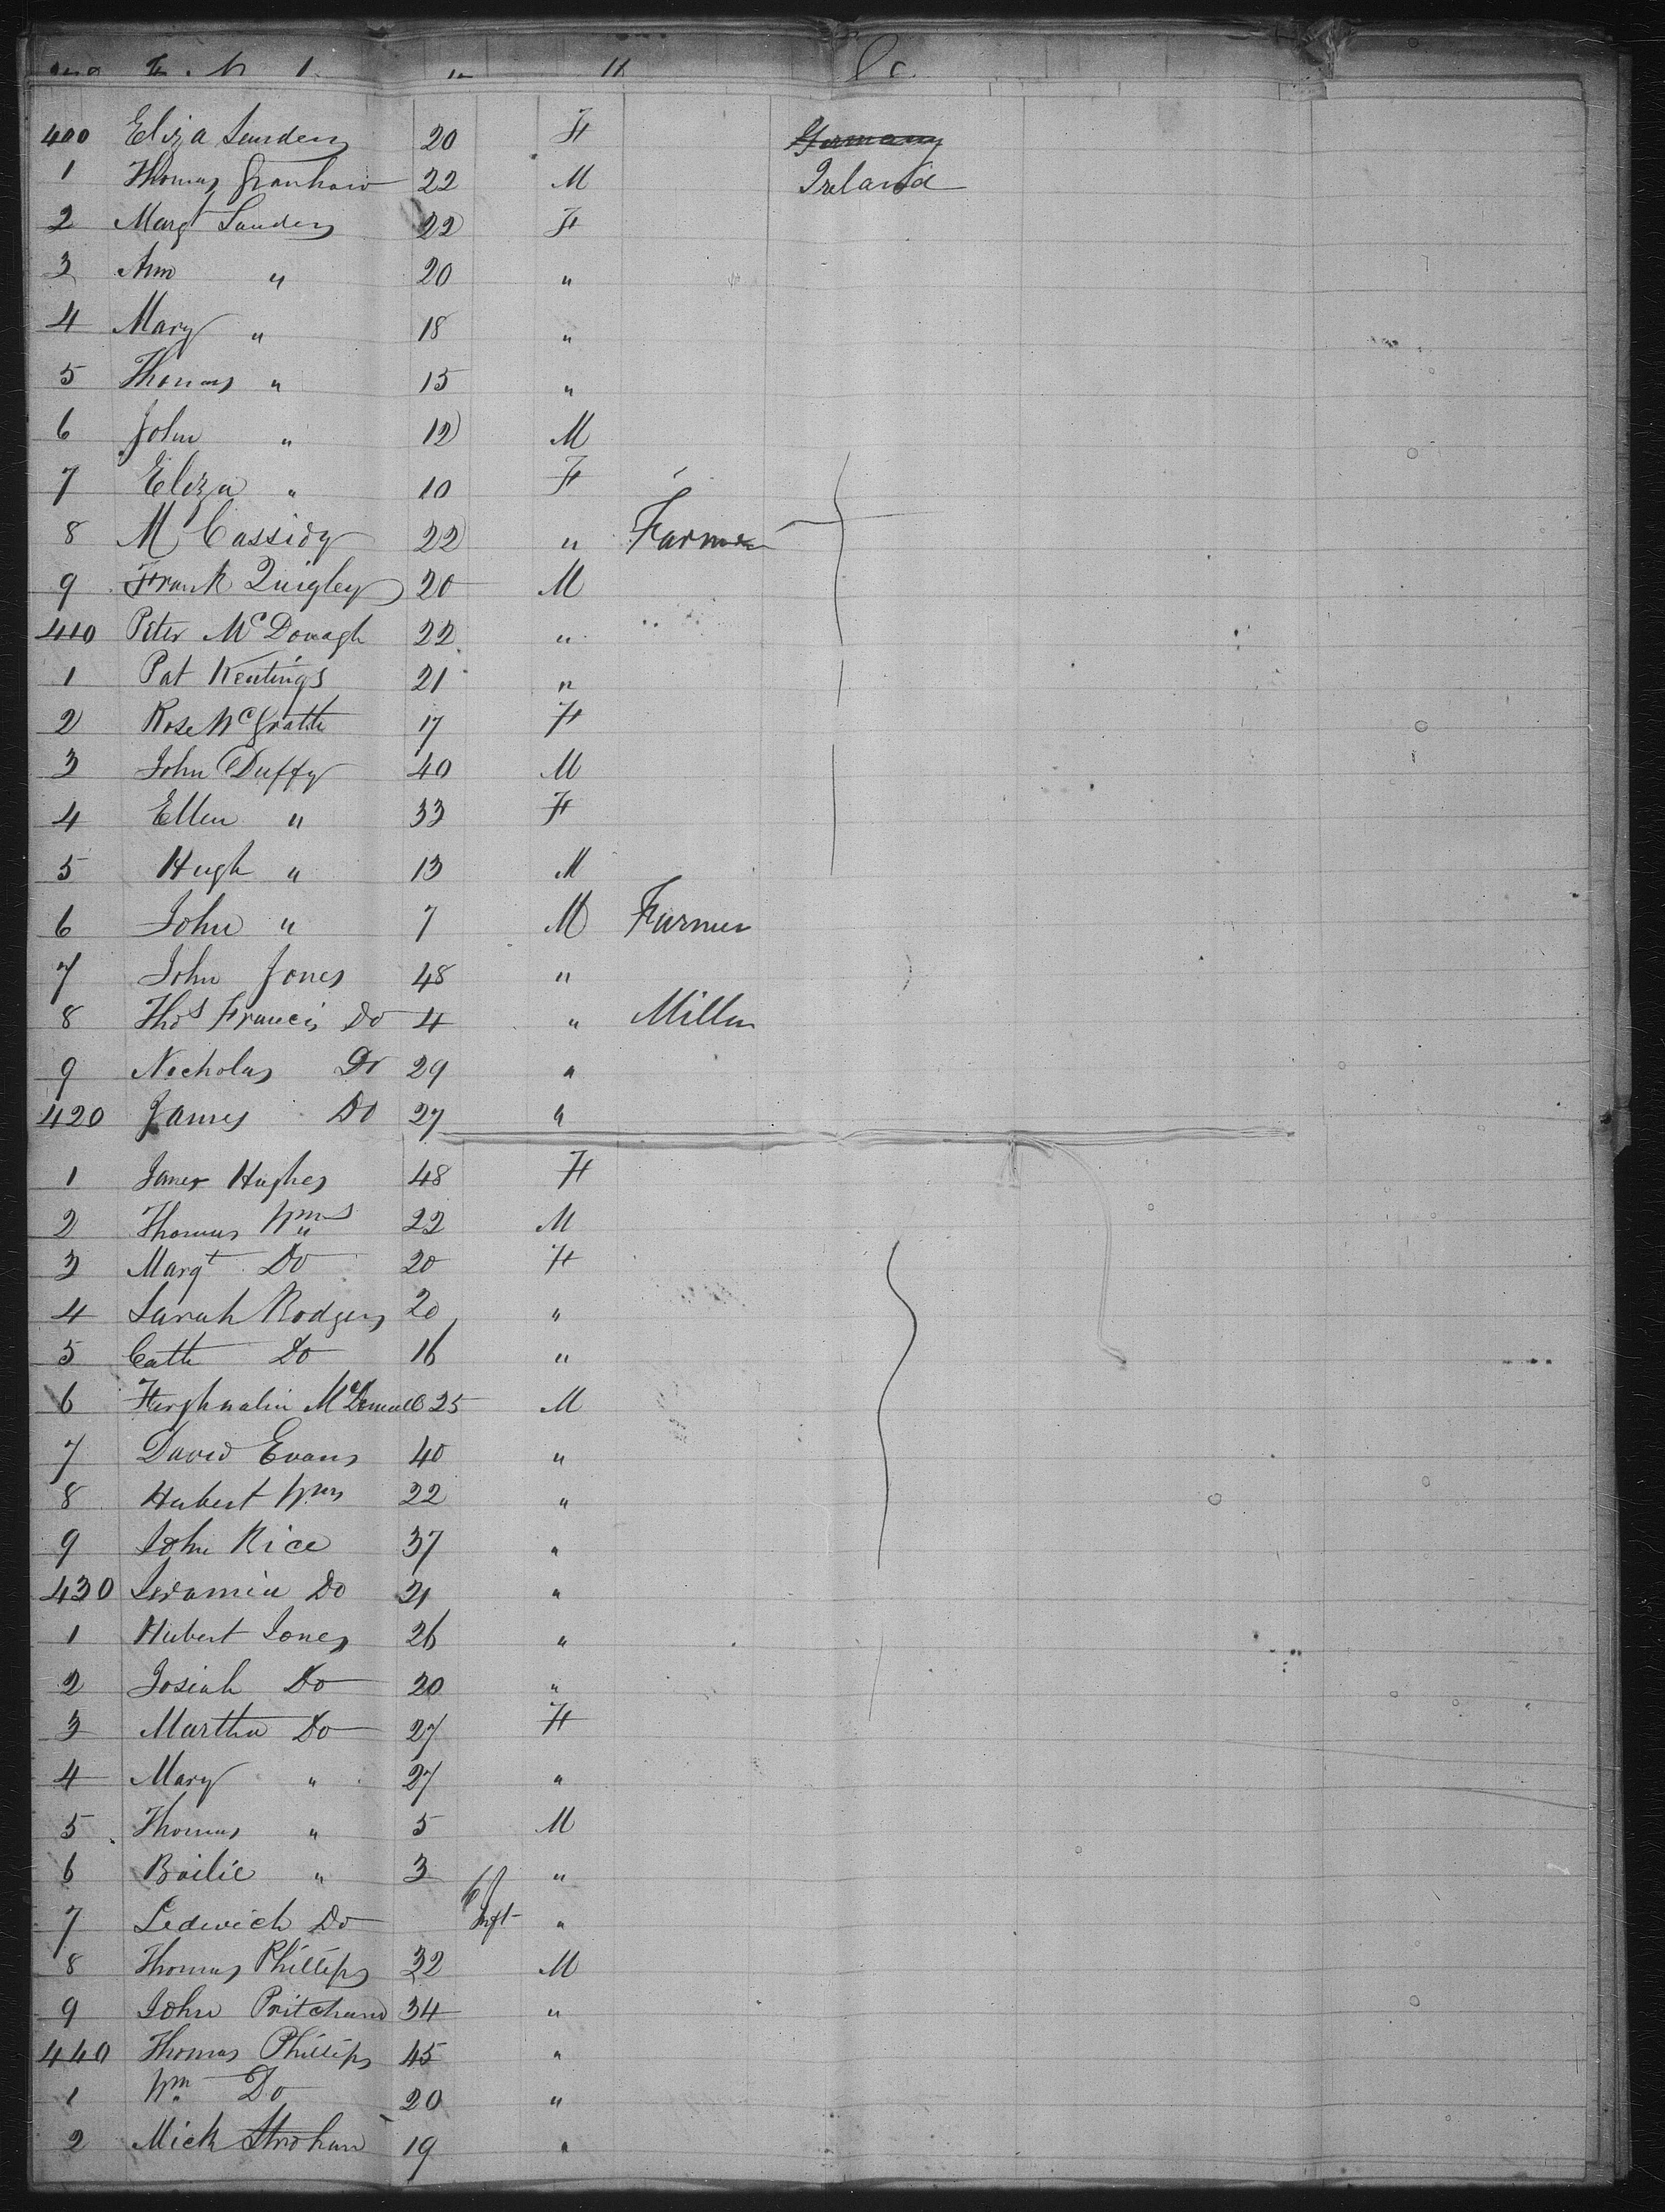 400 Eliza Sanders 20 F Germany
1 Thomas 22 M Ireland
2 Margt Sanders 22 F
3 Ann " 20 "
4 Mary " 18 "
5 Thomas " 15 "
6 John " 12 M
7 Eliza " 10 F
8 M Cassidy 22 " Farmer
9 Frank Quigley 20 M
410 Peter McDonagh 22 "
1 Pat Keatings 21 "
2 Rose McGratth 17 F
3 John Duffy 40 M
4 Ellen " 33 F
5 Hugh " 13 M
6 John " 7 M Farmer
7 John Jones 48 "
8 Thos Francis Do 4 " Miller
9 Nicholas Do 29 "
420 James Do 27 "
1 Hughes 48 F
2 Thomas Wms 22 M
3 Margt Do 20 F
4 Sarah Rodgers 20 "
5 Cath Do 16 "
6 25 M
7 David Evans 40 "
8 Hubert Wms 22 "
9 John Rice 37 "
430 Do 21 "
1 Hubert Jones 26 "
2 Josiah Do 20 "
3 Martha Do 27 F
4 Mary " 27 "
5 Thomas " 5 M
6 Bailie " 3 "
7 Ledwich Do Inft "
8 Thomas Phillips 32 M
9 John Pritchard 34 "
440 Thomas Phillips 45 "
1 Wm Do 20 "
2 Mick Strohan 19 "